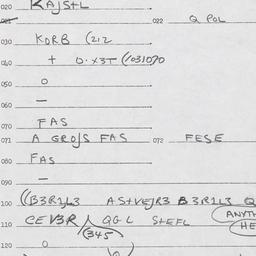 020 KAJS+L
021 022 Q POL
030 KORB (212
040 + O·X3T (/031070
050 O
060 —
070 FAS
071 A GROJS FAS 072 FESE
080 FAS
090 —
((B3R1L3 AS+VEJR3 B3R1L3 Q
100 CEV3R QGL S+EFL (ANYTH
110 (345 (HE
120 O